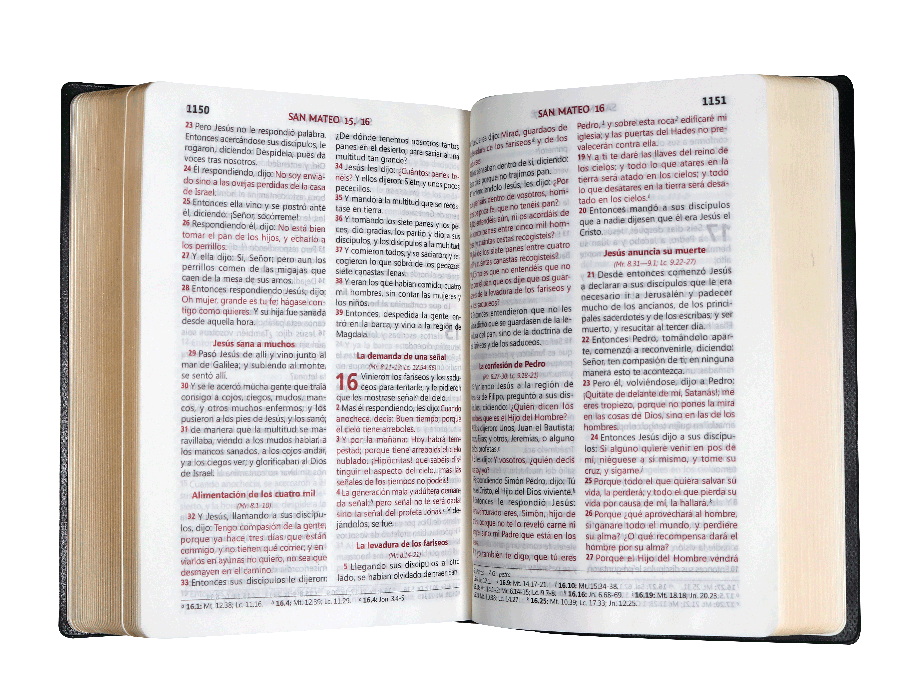 1150
SAN MATEO 15, 16
23 Pero Jesús no le respondió palabra.
Entonces acercándose sus discípulos, le
rogaron, diciendo: Despídela, pues da
voces tras nosotros.
24 Él respondiendo, dijo: No soy envia-
do sino a las ovejas perdidas de la casa
de Israel.
25 Entonces ella vino y se postró ante
él, diciendo: ¡Señor, socórreme!
26 Respondiendo él, dijo: No está bien
tomar el pan de los hijos, y echarlo a
los perrillos.
27 Y ella dijo: Sí, Señor; pero aun los
perrillos comen de las migajas que
caen de la mesa de sus amos.
28 Entonces respondiendo Jesús, dijo:
Oh mujer, grande es tu fe; hágase con-
tigo como quieres. Y su hija fue sanada
desde aquella hora.
Jesús sana a muchos
29 Pasó Jesús de allí y vino junto al
mar de Galilea; y subiendo al monte,
se sentó allí.
30 Y se le acercó mucha gente que traía
consigo a cojos, ciegos, mudos, man-
cos, y otros muchos enfermos; y los
pusieron a los pies de Jesús, y los sanó;
31 de manera que la multitud se ma-
ravillaba, viendo a los mudos hablar, a
los mancos sanados, a los cojos andar,
y a los ciegos ver; y glorificaban al Dios
de Israel.
Alimentación de los cuatro mil
(Mr. 8.1-10)
32 Y Jesús, llamando a sus discípu-
los, dijo: Tengo compasión de la gente,
porque ya hace tres días que están
conmigo, y no tienen qué comer; y en-
viarlos en ayunas no quiero, no sea que
desmayen en el camino.
33 Entonces sus discípulos le dijeron:
¿De dónde tenemos nosotros tantos
panes en el desierto, para saciar a una
multitud tan grande?
34 Jesús les dijo: ¿Cuántos panes te-
néis? Y ellos dijeron: Siete, y unos pocos
pececillos.
35 Y mandó a la multitud que se recos-
tase en tierra.
36 Y tomando los siete panes y los pe-
ces, dio gracias, los partió y dio a sus
discípulos, y los discípulos a la multitud.
37 Y comieron todos, y se saciaron; y re-
cogieron lo que sobró de los pedazos,
siete canastas llenas.
38 Y eran los que habían comido, cuatro
mil hombres, sin contar las mujeres y
los niños.
39 Entonces, despedida la gente, en-
tró en la barca, y vino a la región de
Magdala.
La demanda de una señal
(Mr. 8.11-13; Lc. 12.54-56)
16 Vinieron los fariseos y los sadu-
ceos para tentarle, y le pidieron
que les mostrase señal del cielo.
2 Mas él respondiendo, les dijo: Cuando
anochece, decís: Buen tiempo; porque
el cielo tiene arreboles.
3 Y por la mañana: Hoy habrá tem-
pestad; porque tiene arreboles el cielo
nublado. ¡Hipócritas! que sabéis dis-
tinguir el aspecto del cielo, ¡mas las
señales de los tiempos no podéis!
4 La generación mala y adúltera demanda
señal; pero señal no le será dada,
sino la señal del profeta Jonás. Y de-
jándolos, se fue.
La levadura de los fariseos
(Mr. 8.14-21)
5 Llegando sus discípulos al otro
lado, se habían olvidado de traer pan.
16.1: Mt. 12.38; Lc. 11.16. 16.4: Mt. 12.39; Lc. 11.29. 16.4: Jon. 3.4-5.
SAN MATEO 16
1151
les dijo: Mirad, guardaos de
de los fariseos y de los
dentro de sí, diciendo:
porque no trajimos pan.
Jesús, les dijo: ¿Por
dentro de vosotros, hom-
fe, que no tenéis pan?
aún, ni os acordáis de
entre cinco mil hom-
cestas recogisteis?
los siete panes entre cuatro
canastas recogisteis?
es que no entendéis que no
pan que os dije que os guar-
de la levadura de los fariseos y
saduceos?
entendieron que no les
dicho que se guardasen de la le-
del pan, sino de la doctrina de
y de los saduceos.
La confesión de Pedro
(Mr. 8.27-30; Lc. 9.18-21)
Jesús a la región de
de Filipo, preguntó a sus dis-
diciendo: ¿Quién dicen los
que es el Hijo del Hombre?
dijeron: Unos, Juan el Bautista;
Elías; y otros, Jeremías, o alguno
profetas.
dijo: Y vosotros, ¿quién decís
soy?
Simón Pedro, dijo: Tú
Cristo, el Hijo del Dios viviente.
le respondió Jesús:
eres, Simón, hijo de
porque no te lo reveló carne ni
mi Padre que está en los
también te digo, que tú eres
Pedro, y sobre esta roca edificaré mi
iglesia; y las puertas del Hades no pre-
valecerán contra ella.
19 Y a ti te daré las llaves del reino de
los cielos; y todo lo que atares en la
tierra será atado en los cielos; y todo
lo que desatares en la tierra será desa-
tado en los cielos.
20 Entonces mandó a sus discípulos
que a nadie dijesen que él era Jesús el
Cristo.
Jesús anuncia su muerte
(Mr. 8.31—9.1; Lc. 9.22-27)
21 Desde entonces comenzó Jesús
a declarar a sus discípulos que le era
necesario ir a Jerusalén y padecer
mucho de los ancianos, de los princi-
pales sacerdotes y de los escribas; y ser
muerto, y resucitar al tercer día.
22 Entonces Pedro, tomándolo apar-
te, comenzó a reconvenirle, diciendo:
Señor, ten compasión de ti; en ninguna
manera esto te acontezca.
23 Pero él, volviéndose, dijo a Pedro:
¡Quítate de delante de mí, Satanás!; me
eres tropiezo, porque no pones la mira
en las cosas de Dios, sino en las de los
hombres.
24 Entonces Jesús dijo a sus discípu-
los: Si alguno quiere venir en pos de
mí, niéguese a sí mismo, y tome su
cruz, y sígame.
25 Porque todo el que quiera salvar su
vida, la perderá; y todo el que pierda su
vida por causa de mí, la hallará.
26 Porque ¿qué aprovechará al hombre,
si ganare todo el mundo, y perdiere
su alma? ¿O qué recompensa dará el
hombre por su alma?
27 Porque el Hijo del Hombre vendrá
16.9: Mt. 14.17-21. 16.10: Mt. 15.34-38.
Mr. 6.14-15; Lc. 9.7-8. 16.16: Jn. 6.68-69. 16.19: Mt. 18.18; Jn. 20.23.
16.25: Mt. 10.39; Lc. 17.33; Jn. 12.25.